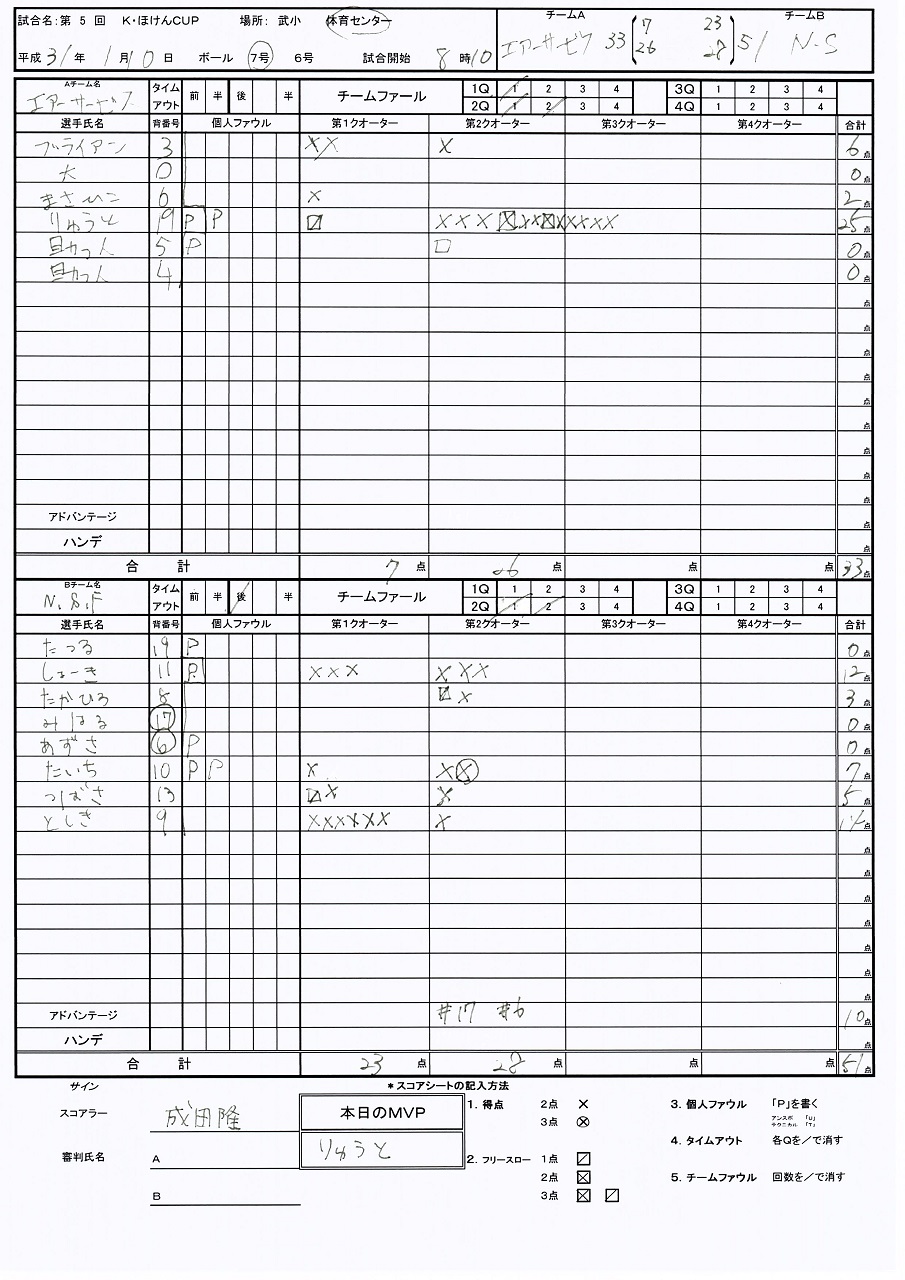 試合名：第 5 回 K・ほけんCUP 場所： 武小 体育センター
平成 31 年 1 月 10 日 ボール 7号 6号 試合開始 8 時 10
チームA チームB
エアーサービス 33 7 23 51 N-S
26 28
Aチーム名 タイム 前 半 後 半 チームファール 1Q 1 2 3 4 3Q 1 2 3 4
エアーサービス アウト 2Q 1 2 3 4 4Q 1 2 3 4
選手氏名 背番号 個人ファウル 第1クオーター 第2クオーター 第3クオーター 第4クオーター 合計
ブライアン 3 X X X 6 点
大 0 0 点
まさひこ 6 X 2 点
りゅうと 19 P P 〼 X X X ☒ X X X ☒ X X X X X X 25 点
助っ人 5 P □ 0 点
助っ人 4 0 点
点
点
点
点
点
点
点
点
点
アドバンテージ 点
ハンデ 点
合 計 7 点 26 点 点 点 33 点
Bチーム名 タイム 前 半 後 半 チームファール 1Q 1 2 3 4 3Q 1 2 3 4
N.S.F アウト 2Q 1 2 3 4 4Q 1 2 3 4
選手氏名 背番号 個人ファウル 第1クオーター 第2クオーター 第3クオーター 第4クオーター 合計
たつる 19 P 0 点
しょーき 11 P X X X X X X 12 点
たかひろ 8 〼 X 3 点
みはる 17 0 点
あずさ 6 P 0 点
たいち 10 P P X X ⊗ 7 点
つばさ 13 〼 X X 5 点
としき 9 X X X X X X X 14 点
点
点
点
点
点
点
点
アドバンテージ #17 #6 10 点
ハンデ 点
合 計 23 点 28 点 点 点 51 点
サイン
スコアラー 成田隆
審判氏名 A
B
本日のMVP
りゅうと
＊スコアシートの記入方法
1. 得点 2点 ×
3点 ⊗
2. フリースロー 1点 〼
2点 ☒
3点 ☒ 〼
3. 個人ファウル 「P」を書く
アンスポ 「U」
テクニカル 「T」
4. タイムアウト 各Qを／で消す
5. チームファウル 回数を／で消す